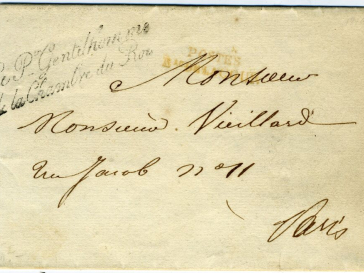 Le Pr. Gentilhomme
de la Chambre du Roi
POSTES
Monsieur
Monsieur Vieillard
rue Jacob nº 11
Paris